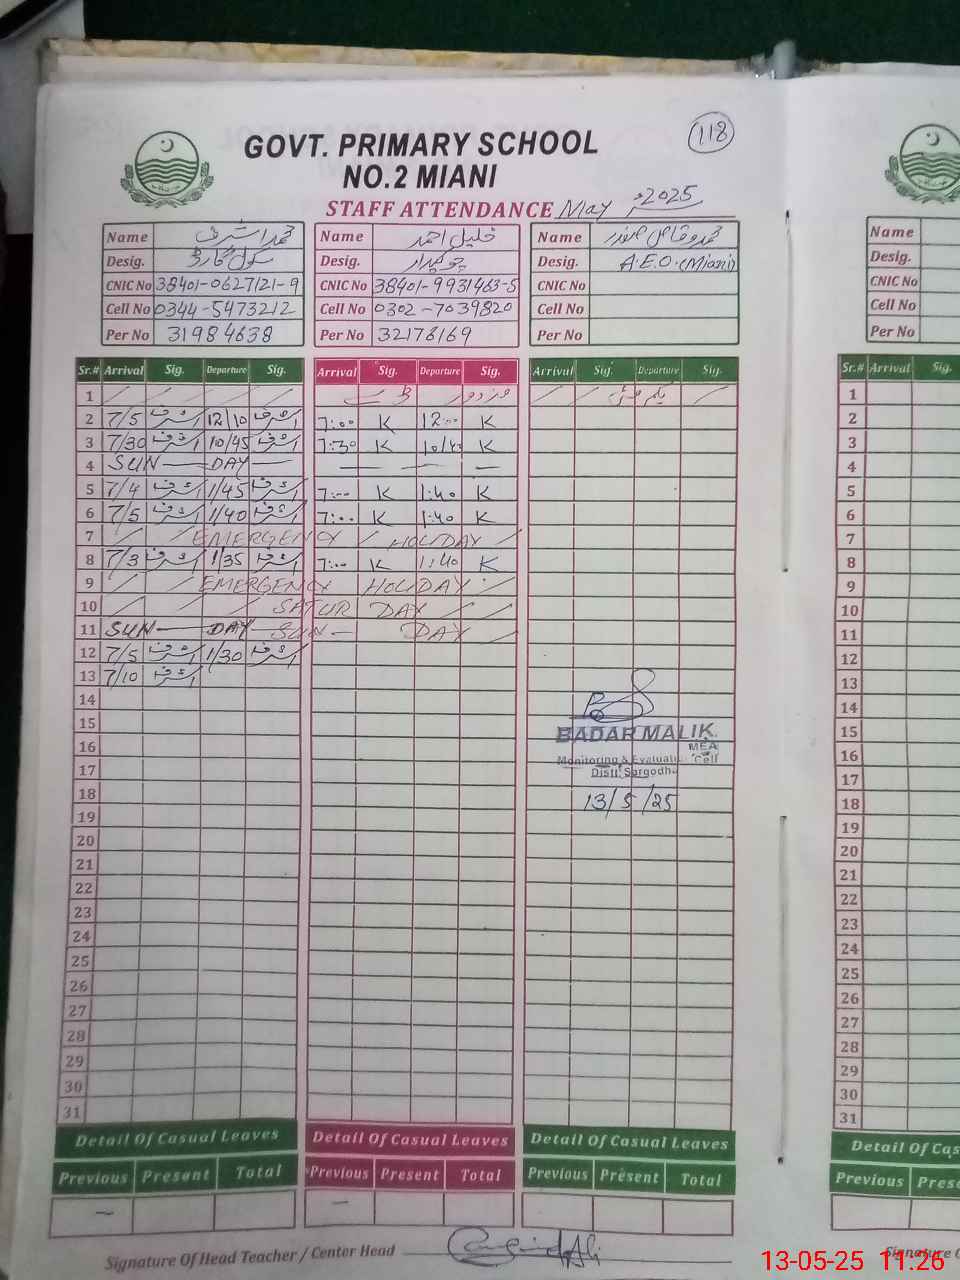 118
GOVT. PRIMARY SCHOOL
NO.2 MIANI
STAFF ATTENDANCE May 2025
Name محمد اشرف Name خلیل احمد Name محمد وقاص صفدر Name
Desig. سکول گارڈ Desig. چوکیدار Desig. A.E.O.(Miani) Desig.
CNIC No 38401-0627121-9 CNIC No 38401-9931463-5 CNIC No CNIC No
Cell No 0344-5473212 Cell No 0302-7039820 Cell No Cell No
Per No 31984638 Per No 32178169 Per No Per No
Sr.# Arrival Sig. Departure Sig. Arrival Sig. Departure Sig. Arrival Sig. Departure Sig. Sr.# Arrival Sig.
1 / / / / / / یکم مئی / 1
2 7/5 اشرف 12/10 اشرف 7:00 K 12:00 K 2
3 7/30 اشرف 10/45 اشرف 7:30 K K 3
4 SUN — DAY — — — — 4
5 7/4 اشرف 1/45 اشرف 7:00 K 1:40 K 5
6 7/5 اشرف 1/40 اشرف 7:00 K 1:40 K 6
7 / / EMERGENCY / HOLIDAY / 7
8 7/3 اشرف 1/35 اشرف 7:00 K 1:40 K 8
9 / / EMERGENCY HOLIDAY / 9
10 / / / / SATUR DAY / / 10
11 SUN — DAY SUN — DAY / 11
12 7/5 اشرف 1/30 اشرف 12
13 7/10 اشرف 13
14 14
15 BADAR MALIK. 15
16 MEA 16
17 Monitoring & Evaluati Cell 17
Distt. Sargodha
18 13/5/25 18
19 19
20 20
21 21
22 22
23 23
24 24
25 25
26 26
27 27
28 28
29 29
30 30
31 31
Detail Of Casual Leaves Detail Of Casual Leaves Detail Of Casual Leaves Detail Of Cas
Previous Present Total Previous Present Total Previous Present Total Previous Prese
— —
Signature Of Head Teacher / Center Head Signature O
13-05-25 11.26